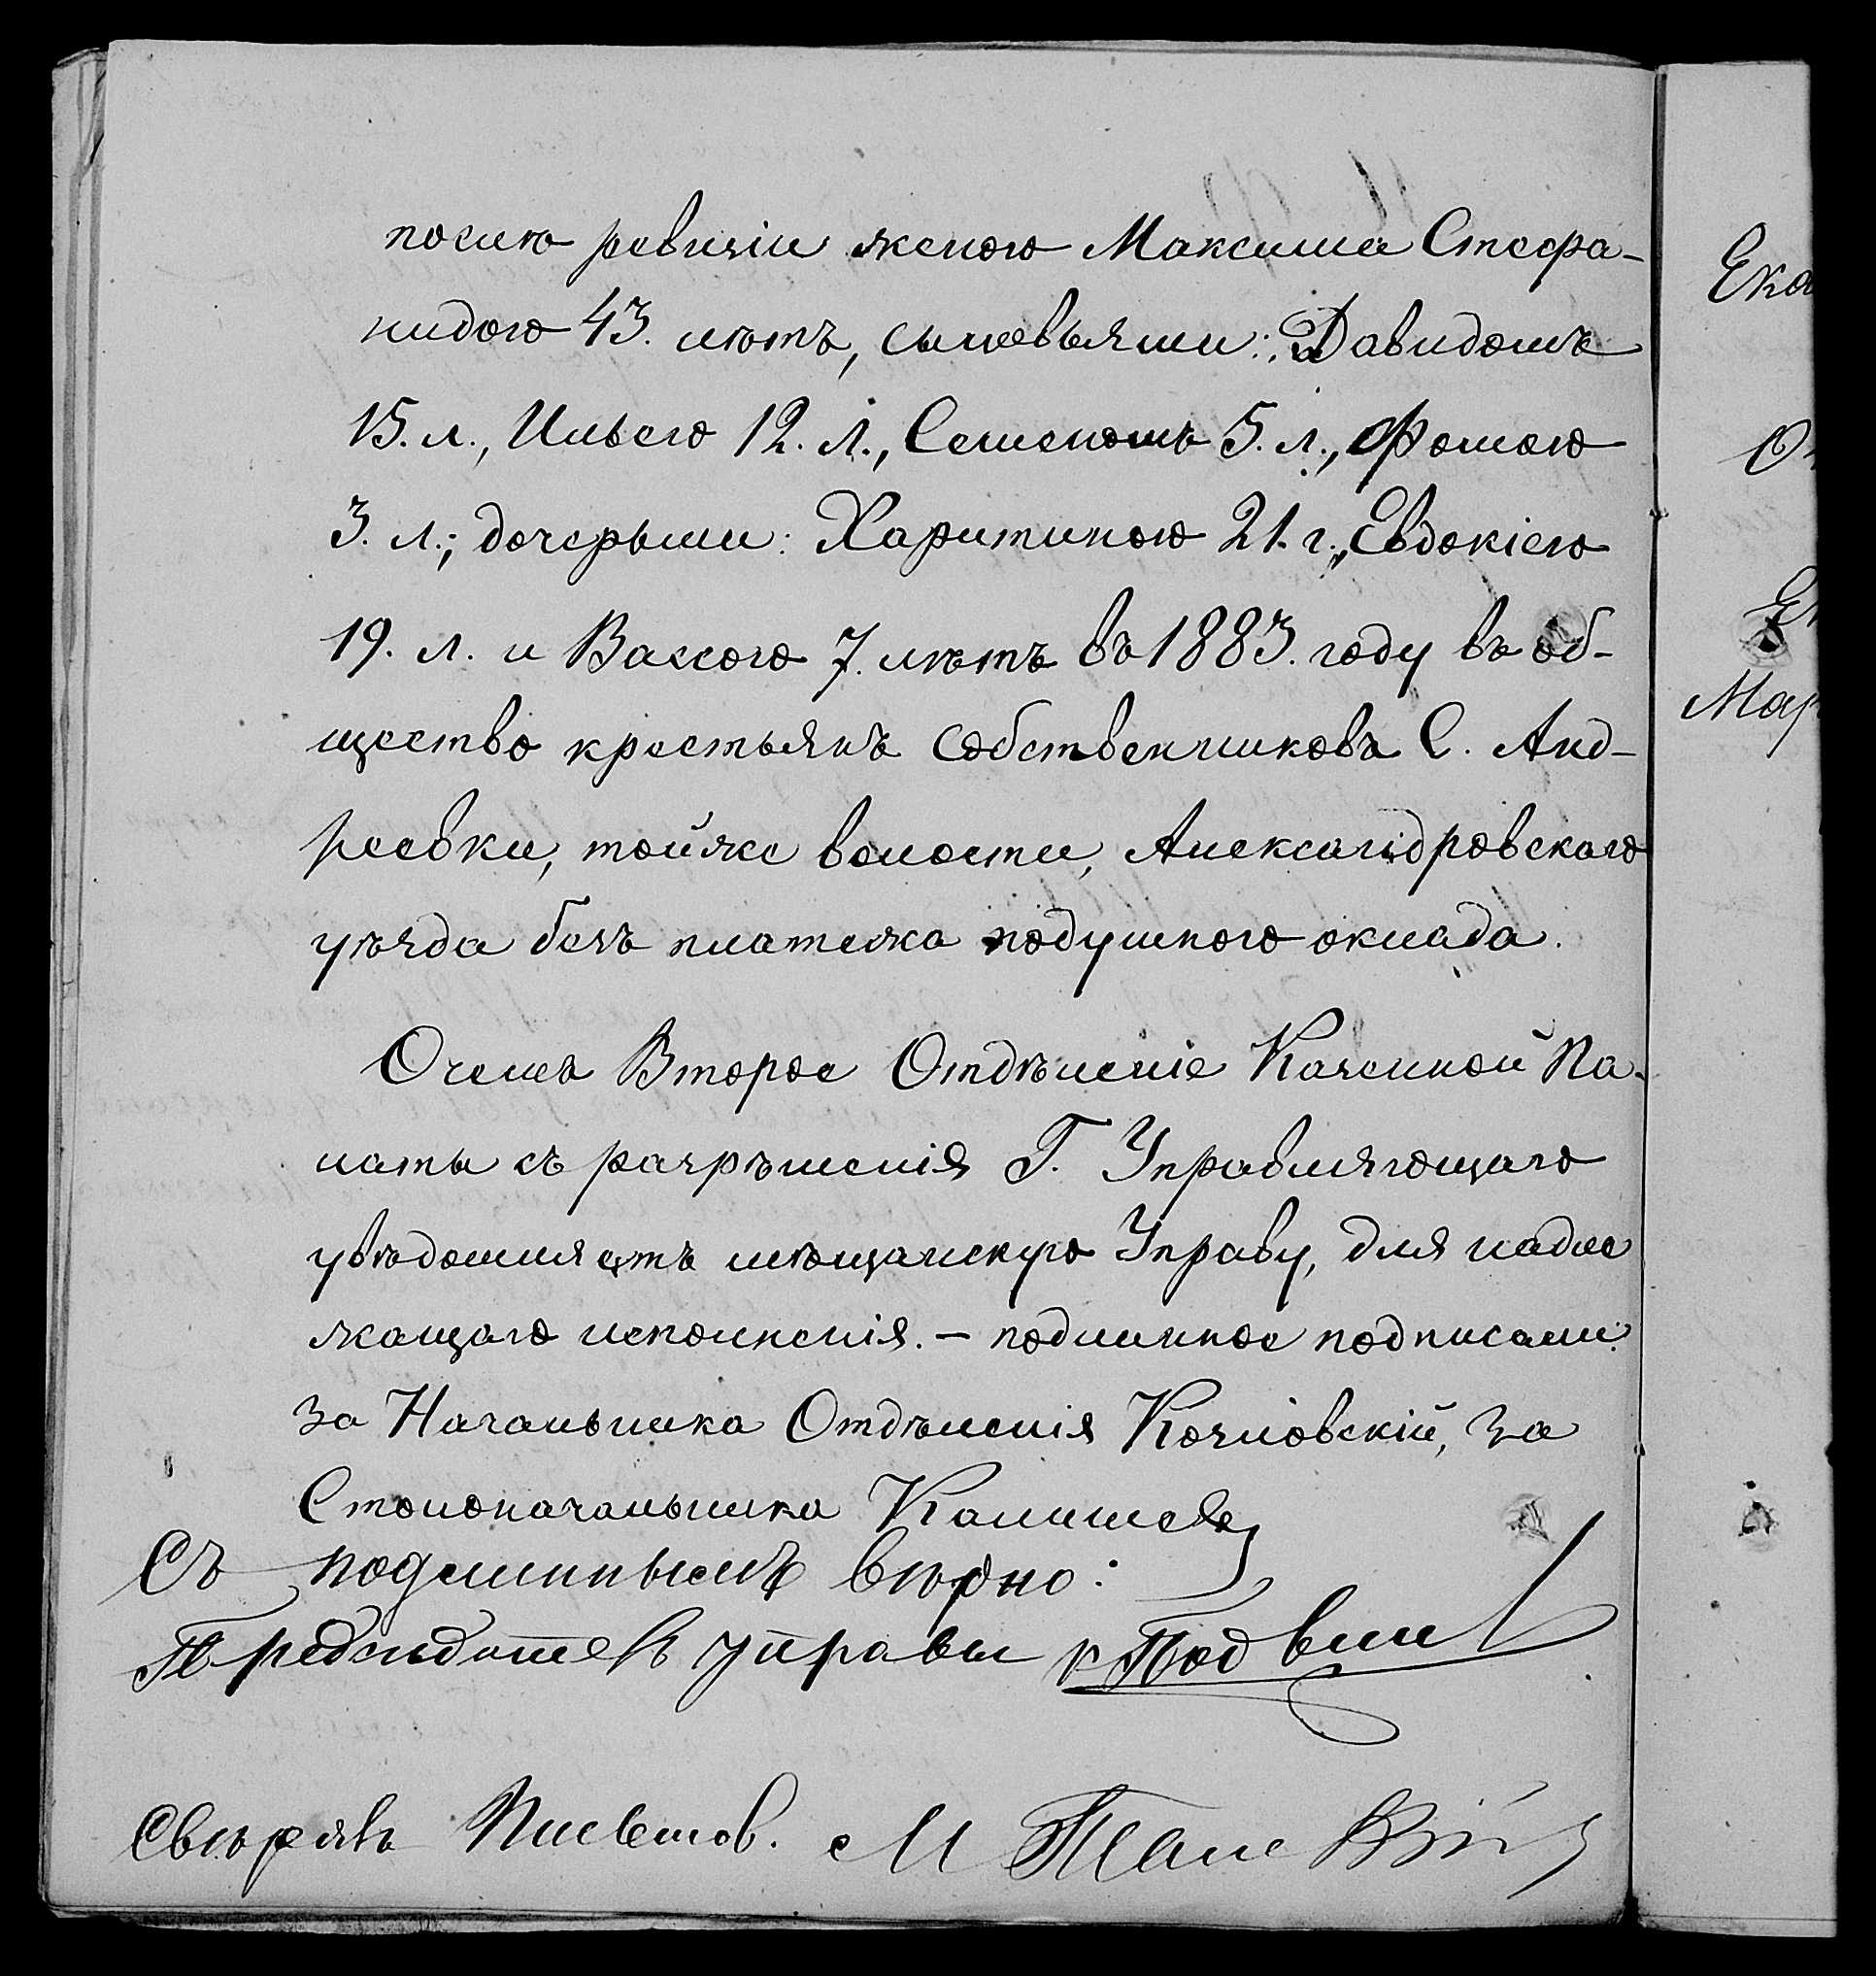 послѣ ревизіи женою Максима Стефа-
нидою 43. лѣтъ, сыновьями: Давидомъ
15. л., Ильею 12. л., Семеномъ 5. л., Фомою
3. л.; дочерьми: Харитиною 21. г., Евдокіею
19. л. и Вассою 7. лѣтъ въ 1883. году въ об-
щество крестьянъ собственниковъ С. Анд-
реевки, тойже волости, Александровскаго
уѣзда безъ платежа подушнаго оклада.
О чемъ Второе Отдѣленіе Казенной Па-
латы съ разрѣшенія Г. Управляющаго
увѣдомляетъ мѣщанскую Управу, для надле
жащаго исполненія. – подлинное подписали:
за Начальника Отдѣленія Козловскій, за
Столоначальника
Съ подлиннымъ вѣрно:
Предсѣдатель управы
Свѣрялъ Письмов. М
Ека
Мар